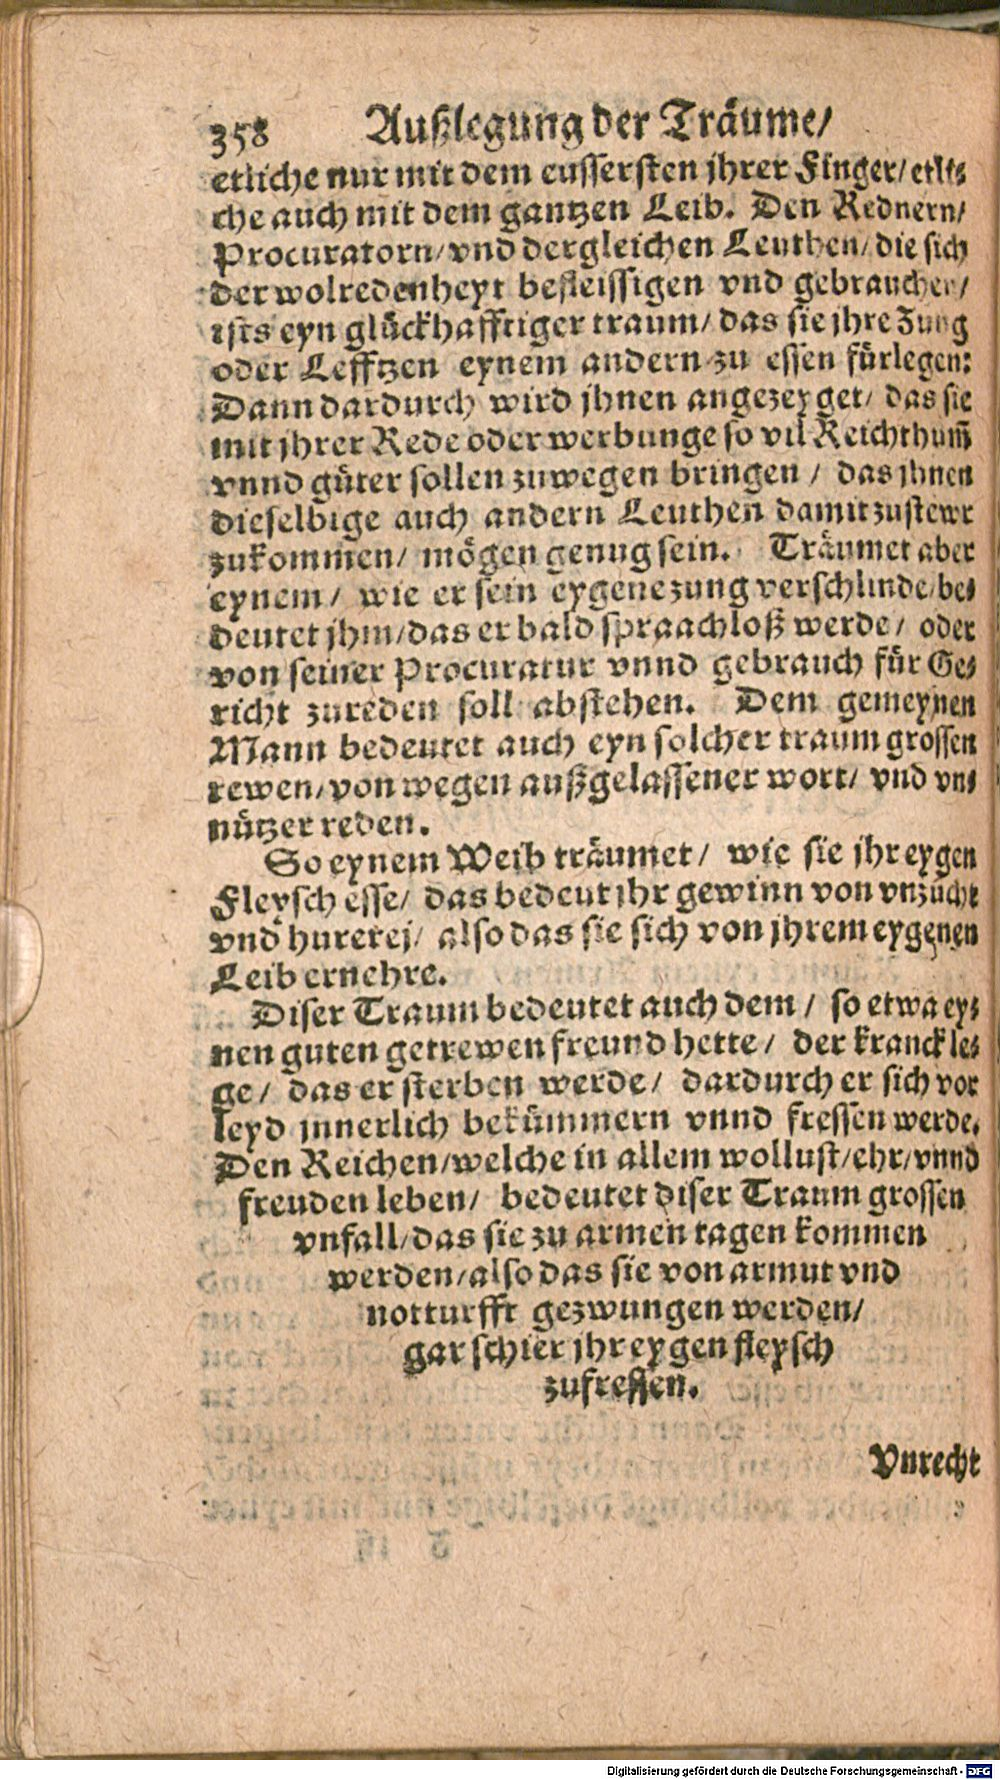 358 Außlegung der Träume/
etliche nur mit dem eussersten jhrer Finger/ etli-
che auch mit dem gantzen Leib. Den Rednern/
Procuratorn/ vnd dergleichen Leuthen/ die sich
der wolredenheyt befleissigen vnd gebrauchen/
ists eyn glückhafftiger traum/ das sie jhre Zung
oder Lefftzen eynem andern zu essen fürlegen:
Dann dardurch wird jhnen angezeyget/ das sie
mit jhrer Rede oder werbunge so vil Reichthum̃
vnnd güter sollen zuwegen bringen / das jhnen
dieselbige auch andern Leuthen damit zustewr
zukommen/ mögen genug sein. Träumet aber
eynem/ wie er sein eygene zung verschlinde/ be-
deutet jhm/ das er bald spraachloß werde/ oder
von seiner Procuratur vnnd gebrauch für Ge-
richt zureden soll abstehen. Dem gemeynen
Mann bedeutet auch eyn solcher traum grossen
rewen/ von wegen außgelassener wort/ vnd vn-
nützer reden.
So eynem Weib träumet/ wie sie jhr eygen
Fleysch esse/ das bedeut jhr gewinn von vnzücht
vnd hurerej/ also das sie sich von jhrem eygenen
Leib ernehre.
Diser Traum bedeutet auch dem/ so etwa ey-
nen guten getrewen freund hette/ der kranck le-
ge/ das er sterben werde/ dardurch er sich vor
leyd jnnerlich bekümmern vnnd fressen werde.
Den Reichen/ welche in allem wollust/ ehr/ vnnd
freuden leben/ bedeutet diser Traum grossen
vnfall/ das sie zu armen tagen kommen
werden/ also das sie von armut vnd
notturfft gezwungen werden/
gar schier jhr eygen fleysch
zufressen.
Vnrecht
Digitalisierung gefördert durch die Deutsche Forschungsgemeinschaft - DFG